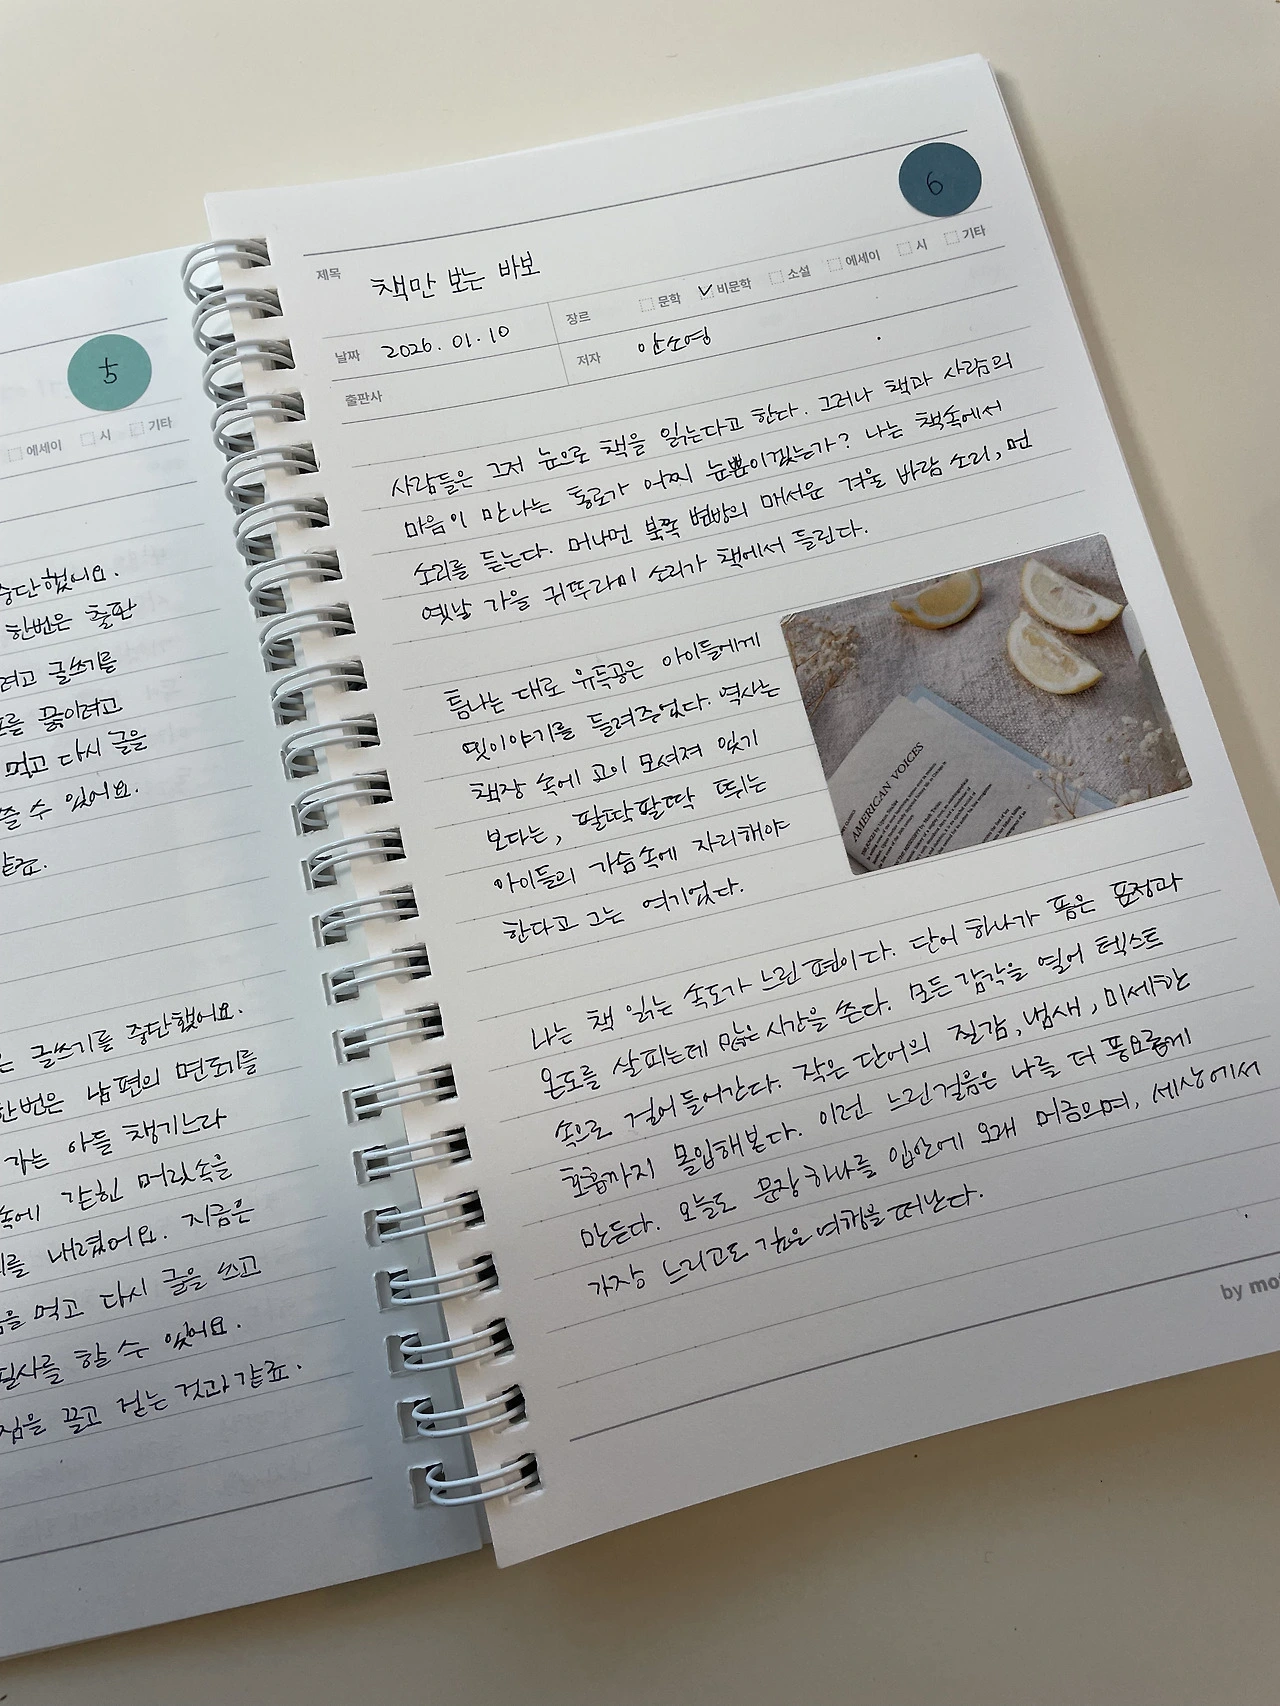 5
에세이 시 기타
중단했어요.
한번은 출판
려고 글쓰기를
끓이려고
먹고 다시 글을
수 있어요.
같죠.
글쓰기를 중단했어요.
한번은 남편의 면도기를
가는 아들 챙기느라
속에 갇힌 머릿속을
내렸어요. 지금은
먹고 다시 글을 쓰고
필사를 할 수 있어요.
짐을 끌고 걷는 것과 같죠.
6
제목 책만 보는 바보
날짜 2026. 01. 10 장르 문학 비문학 소설 에세이 시 기타
출판사 저자 안소영
사람들은 그저 눈으로 책을 읽는다고 한다. 그러나 책과 사람의
마음이 만나는 통로가 어찌 눈뿐이겠는가? 나는 책속에서
소리를 듣는다. 머나먼 북쪽 변방의 매서운 겨울 바람 소리, 먼
옛날 가을 귀뚜라미 소리가 책에서 들린다.
틈나는 대로 유득공은 아이들에게
옛이야기를 들려주었다. 역사는
책장 속에 고이 모셔져 있기
보다는, 팔딱팔딱 뛰는
아이들의 가슴속에 자리해야
한다고 그는 여기었다.
AMERICAN VOICES
나는 책 읽는 속도가 느린 편이다. 단어 하나가 품은 표정과
온도를 살피는데 많은 시간을 쓴다. 모든 감각을 열어 텍스트
속으로 걸어 들어간다. 작은 단어의 질감, 냄새, 미세한
호흡까지 몰입해본다. 이런 느린걸음은 나를 더 풍요롭게
만든다. 오늘도 문장 하나를 입안에 오래 머금으며, 세상에서
가장 느리고도 깊은 여행을 떠난다.
by mot